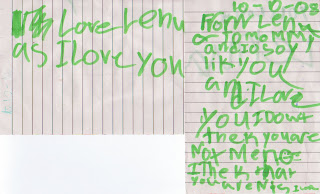 Love Lenu
as I Love you
10-10-08
Form Lenu
To mommy
and i o say
lik you
an I Love
you I Dont
thek you are
Not Mene
I Thek that
you are